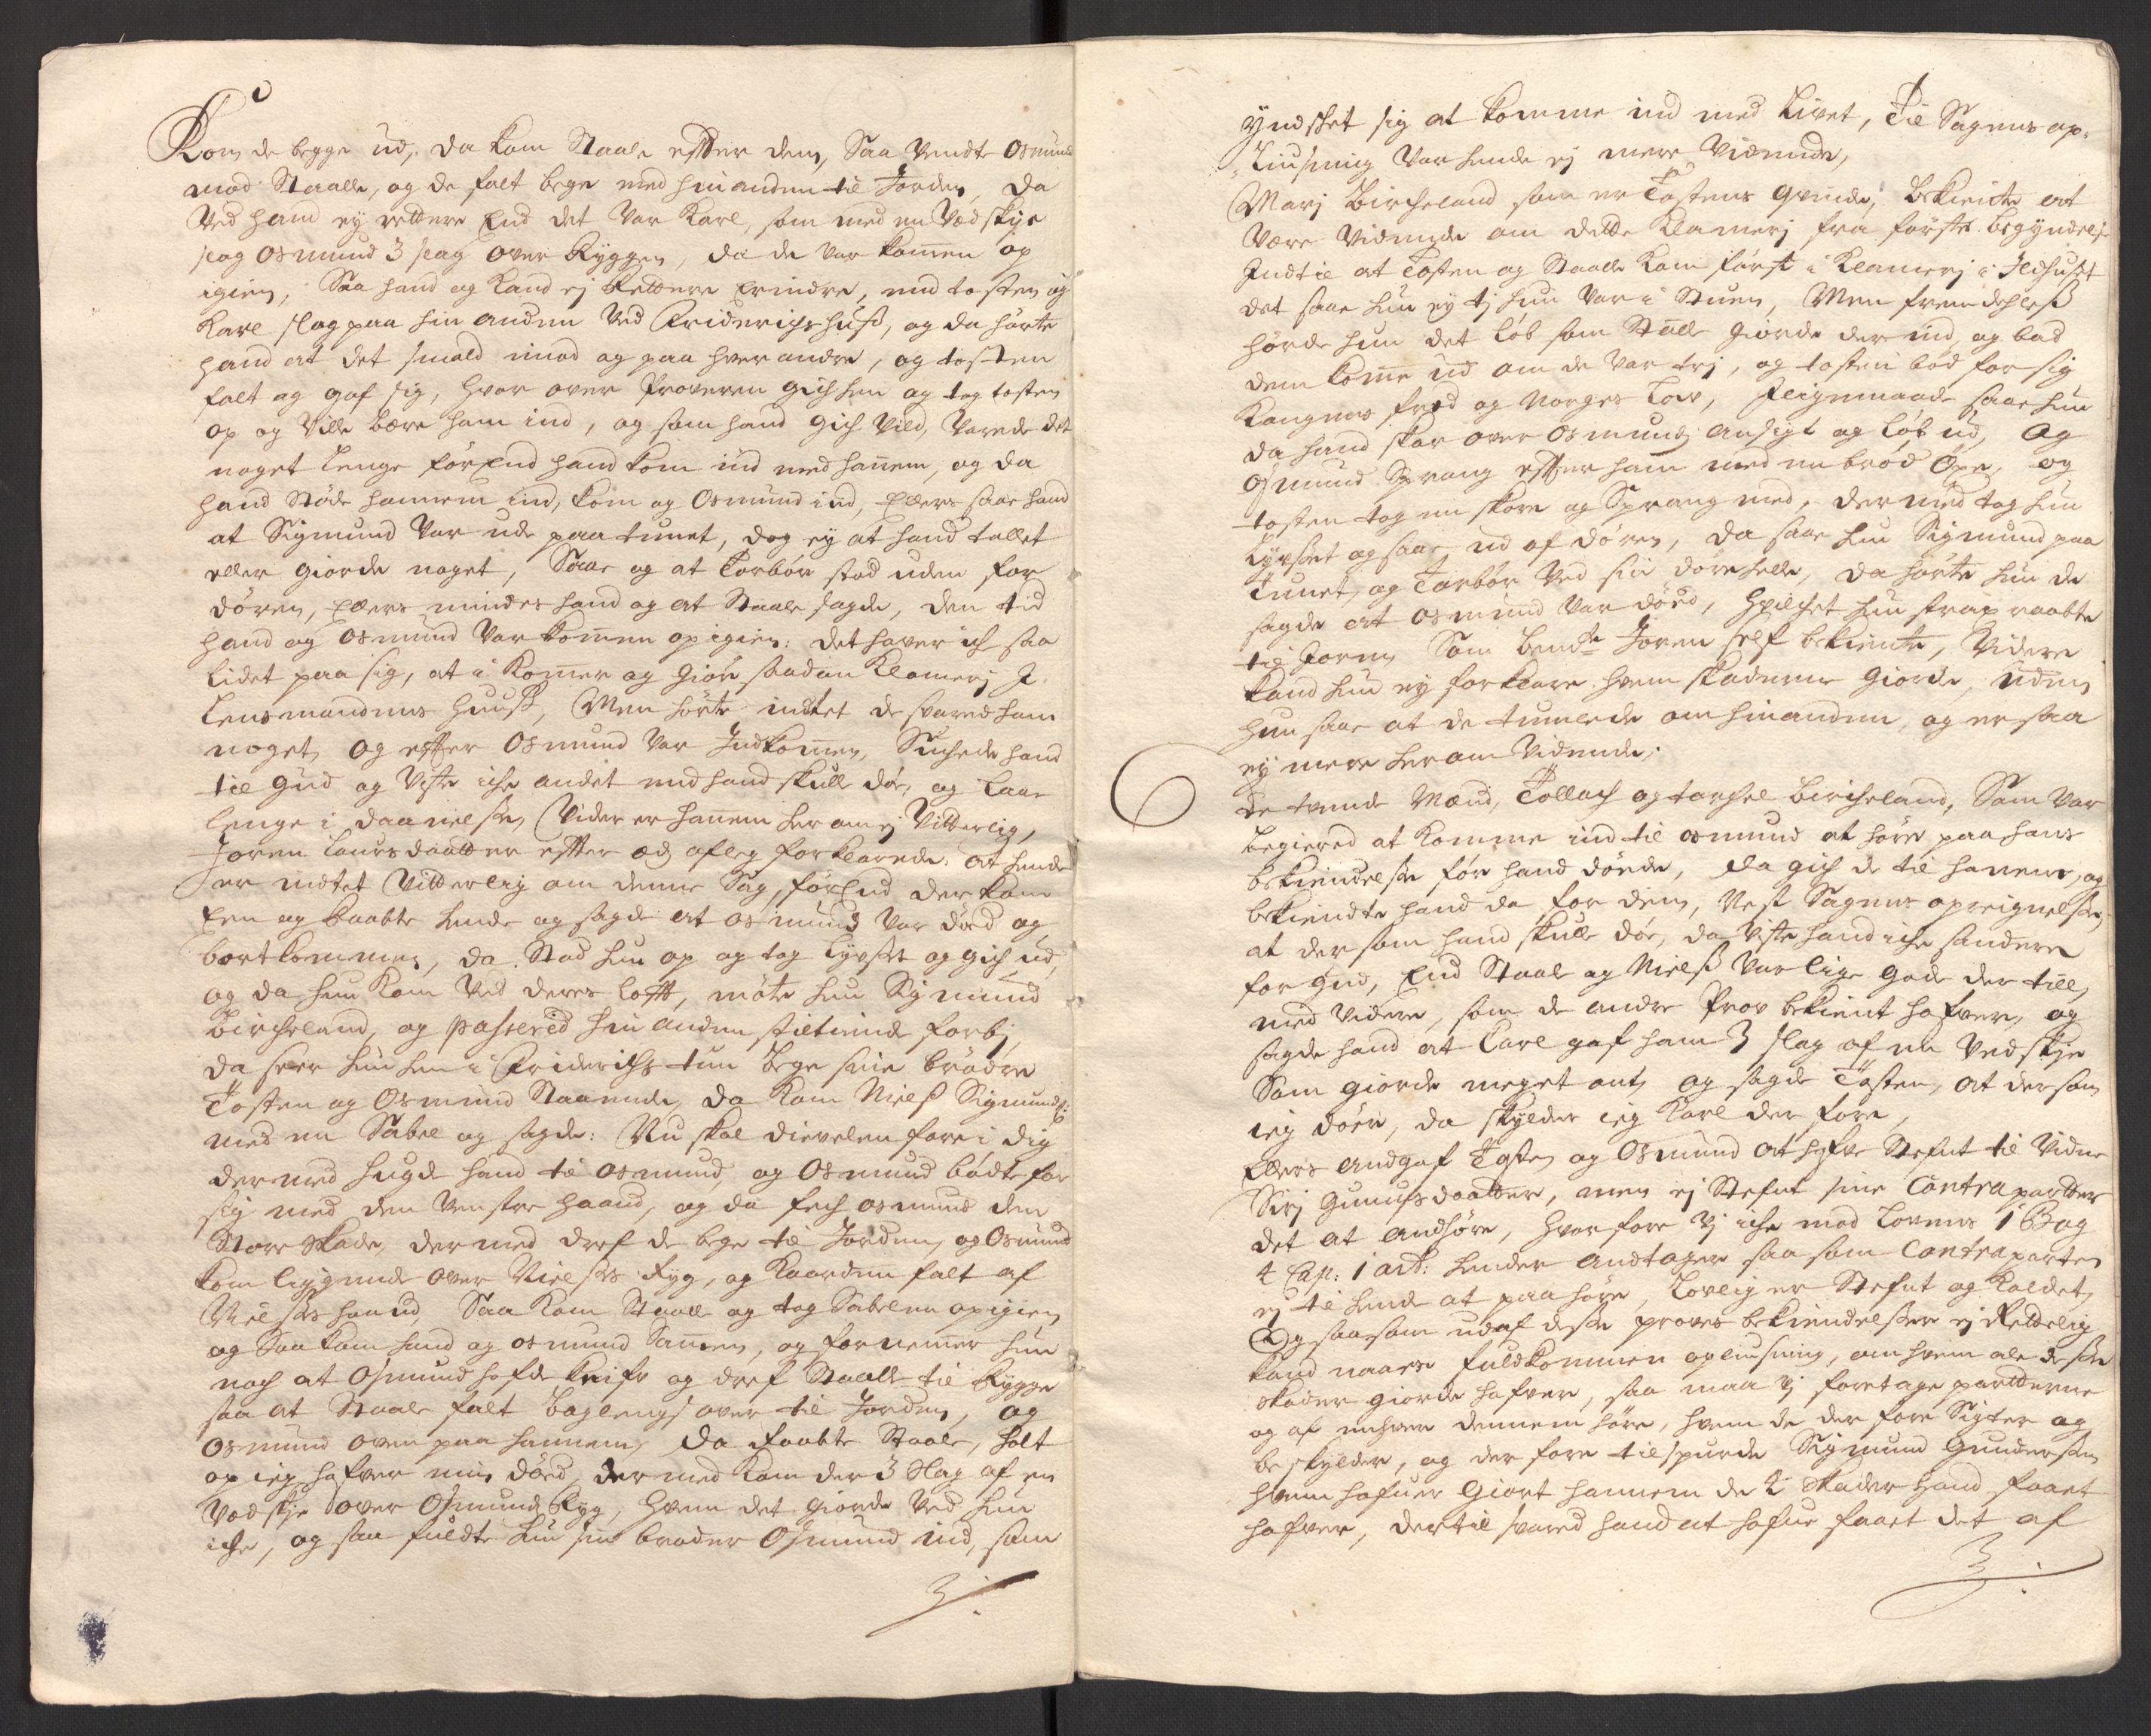 Kom de begge ud, da kom Staale effter dem, Saa vendte Osmund
mod Staalle, og de falt bege med hin anden til Jorden, da
ved hand ey rettere End det var Karl, som med en Vedskije
slog Osmund 3 slag over Ryggen, da de var kommen op
igien, Saa hand og kand ej Rettere Erindre, end tosten og
Karl slog paa hin anden ved Friderichs huß, og da hörte
hand at det smald imod og paa hver andre, og tosten
falt og gaf sig, hvor over Proveren gich hen og tog tosten
op og Ville bære ham ind, og som hand gich vild, varede det
noget lenge förEnd hand kom ind med hannem, og da
hand Stöde hannem ind, kom og Osmund ind, Ellers saae hand
at Sigmund var ude paa tunet, dog ey at hand tallet
eller giorde noget, Saae og at Torbör stod uden for
dören, Ellers mindes hand og at Staale sagde, den tid
hand og Osmund var kommen op igien: det haver ich saa
lidet paa sig, at i kommer og giör saadan Klamerj J
Lensmandens Huuß, Men hörte indtet de svared ham
noget, og effter Osmund var Indkommen, Suchede hand
til gud og viste iche andet end hand skulle döe, og laae
lenge i daanelse, Vider er hannem her om ej Vitterlig,
Joren Laursdaatter effter æd afleg forklarede: At hende
er indtet Vitterlig om denne Sag, förEnd der kom
Een og Raabte hende og sagde at Osmund var död og
bortkommen, da Stod hun op og tog Lyuset og gich ud,
og da hun kom ved deres lofft, möte hun Sigmund
Bircheland, og passered hin anden stiltiende forbj,
da seer hun hen i Friderichs tun bege sine brödre
Tosten og Osmund Staaende, da kom Nielß Sigmunds:
med en Sabel og sagde: Nu skal dievelen fare i dig
dermed hugde hand til Osmund, og Osmund bödte for
sig med den venstre haand, og da fech osmund den
Store Skade, der med dref de bege til Jorden, og Osmund
kom liggende over Nielses Ryg, og Kaarden falt af
Nielses haand, Saa kom Staale og tog Sabelen op igien,
og Saa kom hand og osmund Sammen, og fornemmer hun
noch at Osmund hafde knifv og dref Staale til Rygge
saa at Staale falt baglengs over til Jorden, og
Osmund oven paa hannem, da Raabte Staale, holt
op ieg hafver min död, der med kom der 3 Slag af en
Vedskije over Osmunds Ryg, hvem det giorde ved hun
iche, og saa fuldte hun sin broder Osmund ind, som
yndsket sig at komme ind med Livet, Til Sagens op-
Liusning var hende ej mere vidende,
Marj Bircheland som er Tostens Qvinde, bekiendte at
være vidende om dette klamerj fra förste begyndelse
Indtil at Tosten og Staalle kom först i klamerj i Ildhuset
det saae hun ey tj hun var i Stuen, Men fremdeleß
hörde hun det löb som Stalle giorde der ind, og bad
dem komme ud om de var trj, og tosten böd for sig
Kongens fred og Norges Low, Jligemaade saae hun
da hand skar over Osmunds ansigt og löb ud, og
Osmund Sprang effter ham med en bröd Öxe, og
tosten tog en skore og Sprang med, der med tog hun
Lyuset og saae ud af dören, da saae hun Sigmund paa
tunet, og Torbör ved sin dörehelle, da hörte hun de
sagde at Osmund var död, hvilchet hun strax raabte
til Joren Som bemte Joren self bekiente, Videre
kand hun ey forklare hvem skaderne giorde, uden
hun saae at de tumlede om hinanden, og er saa
ey mere her om vidende,
De tvende Mænd, Tollach og torchel Bircheland, Som var
begiered at komme ind til osmund at höre paa hans
bekiendelse för hand döde, da gich de til hannem, og
bekiendte hand da for dem, Nest Sagens opreignelse,
at der som hand skulle döe, da viste hand iche sandere
for gud, End Staale og Nielß var lige gode der till,
med videre, som de andre Prov bekient hafver, og
sagde hand at Carl gaf ham 3 slag af en Vedskije
Som giorde meget ont, og sagde Tosten, at der som
ieg döer, da skylder ieg Karl der fore,
Ellers andgaf Tosten og Osmund at hafve Stefnt til Vidne
Sirj Gunursdaatter, men ej Stefnt sine Contraparter
det at andhöre, hvorfore vj iche mod Lovens 1 Bog
4 Cap: 1 art: hender andtager saa som Contraparten
ej til hende at paahöre, lovlig er Stefnt og kaldet,
Og saasom udaf disse provs bekiendelser ej Rettelig
kand naaes fuldkommen opliusning, om hvem alle disse
skader giorde hafver, saa maa vj foretage partterne
og af enhver dennem höre, hvem de der fore Sigter og
beskylder, og der fore tilspurde Sigmund Gundersen
hvem hafver giort hannem de 2 Skader hand faaet
hafver, der til svared hand at hafve faaet det af